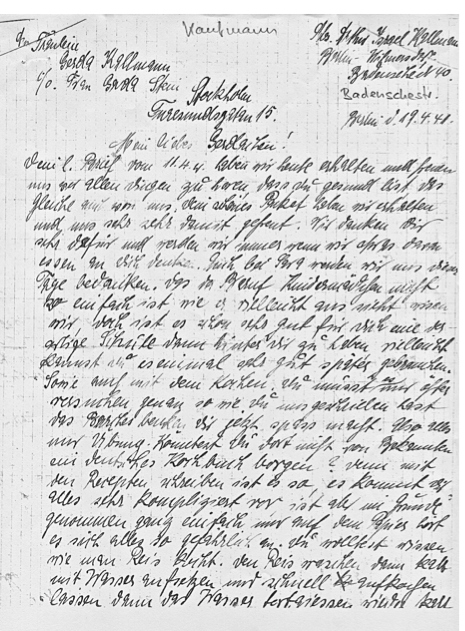 Kaufmann
Abs. Arthur Israel Kallmann
An Fräulein
Gerda Kallmann
c/o. Frau Gerda Stein
Stockholm
Tureundsgatan 15.
Berlin-Wilmersdorf
Badenschestr. 40.
Badenschestr.
Berlin d. 19.4.41.
Mein liebes Gerdachen!
Deinen l. Brief vom 11.4. haben wir heute erhalten und freuen
uns vor allen dingen zu hören dass du gesund bist das
gleiche auch von uns dein schönes Paket haben wir erhalten
und uns sehr sehr damit gefreut. Wir danken Dir
sehr dafür und werden wir immer wenn wir etwas davon
essen an dich denken. Auch bei werden wir uns dieser
Tage bedanken. das der Beruf Kindermädchen nicht
so einfach ist wie es vielleicht aus sieht wissen
wir, doch ist es schon sehr gut für dich eine der-
artige Schule dann hinter dir zu haben vielleicht
kannst du es einmal sehr gut später gebrauchen.
Sowie auch mit dem kochen. du musst nur öfter
versuchen genau so wie du uns geschrieben hast
das dir jetzt spass macht. Also alles
nur Übung. Könntest du dort nicht von Bekannten
ein deutsches Kochbuch borgen? denn mit
den Rezepten schreiben ist es so, es kommt dir
alles sehr kompliziert vor ist aber im Grunde
genommen ganz einfach nur auf dem Papier hört
es sich alles so gefährlich an. du wolltest wissen
wie man Reis kocht. den Reis waschen dann kalt
mit Wasser aufsetzen und schnell aufkochen
lassen dann das Wasser fortgiessen wieder kalt